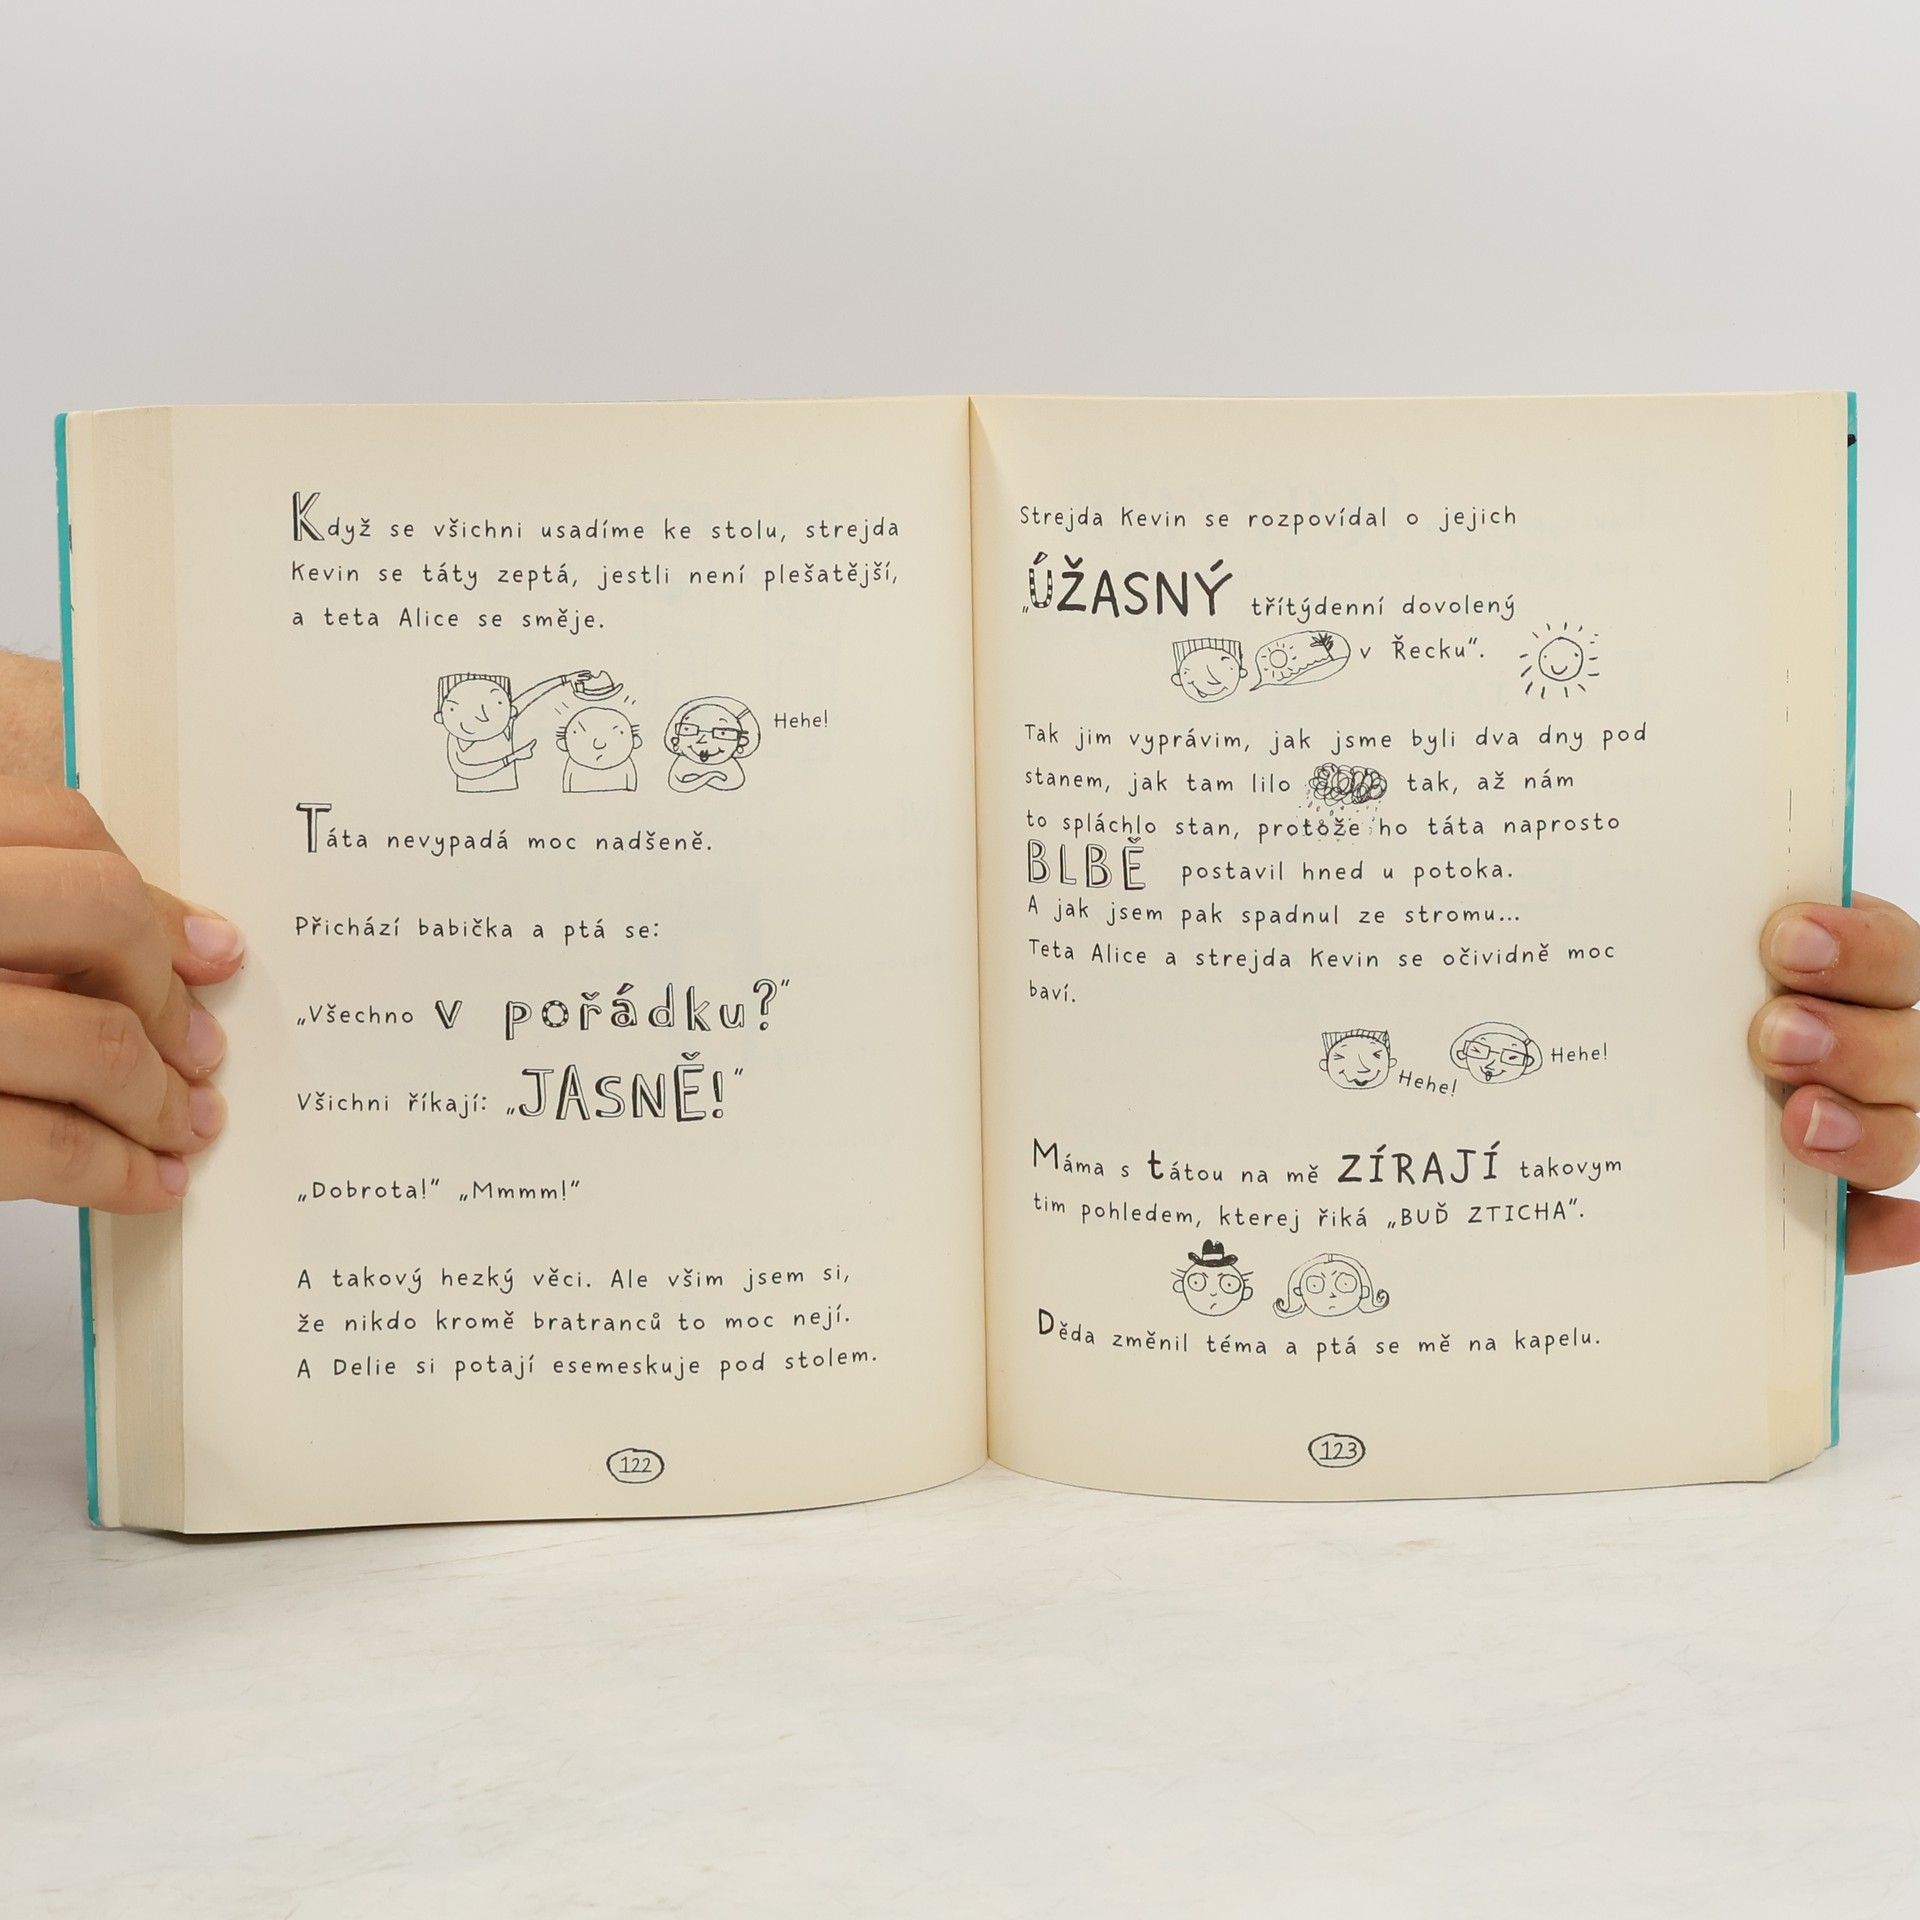 Když se všichni usadíme ke stolu, strejda
Kevin se táty zeptá, jestli není plešatější,
a teta Alice se směje.
Hehe!
Táta nevypadá moc nadšeně.
Přichází babička a ptá se:
„Všechno v pořádku?"
Všichni říkají: „JASNĚ!"
„Dobrota!" „Mmmm!"
A takový hezký věci. Ale všim jsem si,
že nikdo kromě bratranců to moc nejí.
A Delie si potají esemeskuje pod stolem.
122
Strejda Kevin se rozpovídal o jejich
„ÚŽASNÝ třítýdenní dovolený
v Řecku".
Tak jim vyprávim, jak jsme byli dva dny pod
stanem, jak tam lilo tak, až nám
to spláchlo stan, protože ho táta naprosto
BLBĚ postavil hned u potoka.
A jak jsem pak spadnul ze stromu...
Teta Alice a strejda Kevin se očividně moc
baví.
Hehe! Hehe!
Máma s tátou na mě ZÍRAJÍ takovym
tim pohledem, kterej řiká „BUĎ ZTICHA".
Děda změnil téma a ptá se mě na kapelu.
123